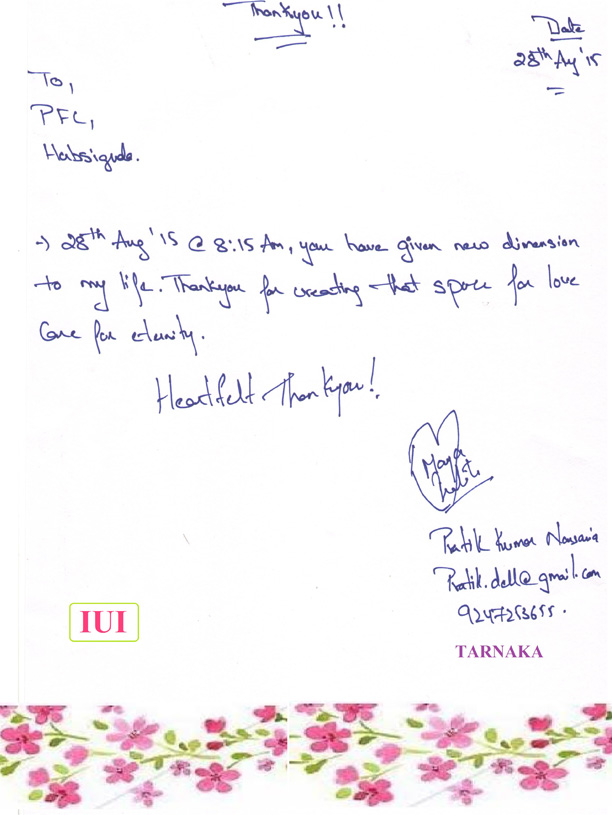 Thankyou!!
Date
28th Aug '15
To,
PFC,
Habsiguda.
-> 28th Aug '15 @ 8:15 Am, you have given new dimension
to my life. Thankyou for creating that space for love
Care for eternity.
Heartfelt Thankyou!
Pratik Kumar
Pratik.dell@gmail.com
9247253655.
IUI
TARNAKA